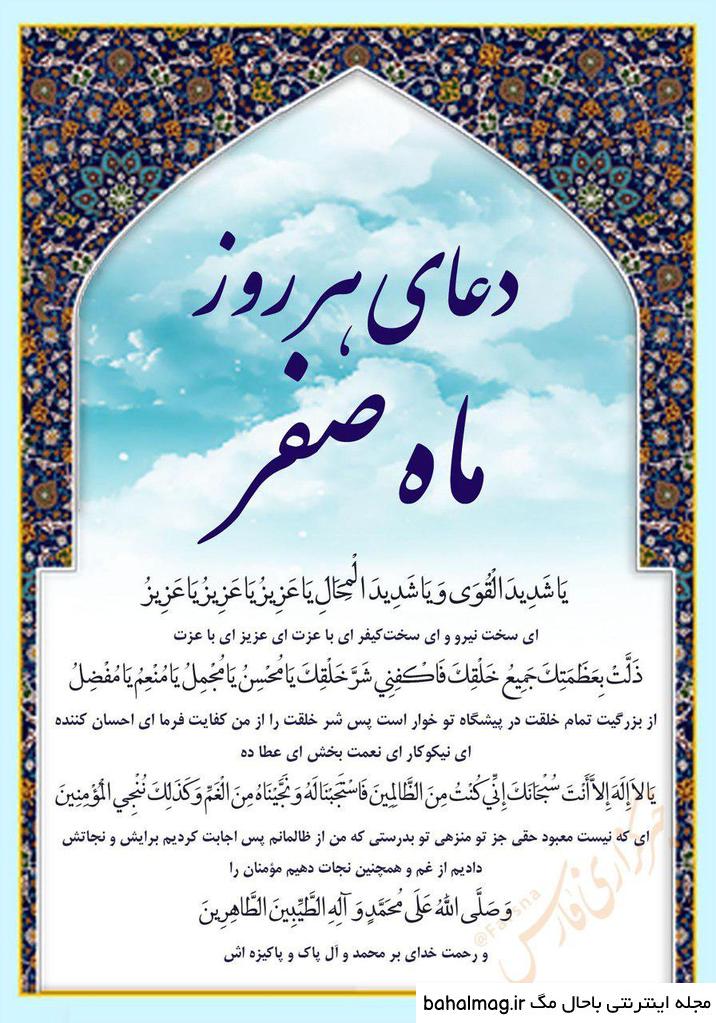 دعای هر روز
ماه صفر
يَا شَدِيدَ الْقُوَى وَ يَا شَدِيدَ الْمِحَالِ يَا عَزِيزُ يَا عَزِيزُ يَا عَزِيزُ
ای سخت نیرو و ای سخت‌کیفر ای با عزت ای عزیز ای با عزت
ذَلَّتْ بِعَظَمَتِكَ جَمِيعُ خَلْقِكَ فَاكْفِنِي شَرَّ خَلْقِكَ يَا مُحْسِنُ يَا مُجْمِلُ يَا مُنْعِمُ يَا مُفْضِلُ
از بزرگیت تمام خلقت در پیشگاه تو خوار است پس شر خلقت را از من کفایت فرما ای احسان کننده
ای نیکوکار ای نعمت بخش ای عطا ده
يَا لاَ إِلَهَ إِلاَّ أَنْتَ سُبْحَانَكَ إِنِّي كُنْتُ مِنَ الظَّالِمِينَ فَاسْتَجَبْنَا لَهُ وَ نَجَّيْنَاهُ مِنَ الْغَمِّ وَ كَذَلِكَ نُنْجِي الْمُؤْمِنِينَ
ای که نیست معبود حقی جز تو منزهی تو بدرستی که من از ظالمانم پس اجابت کردیم برایش و نجاتش
دادیم از غم و همچنین نجات دهیم مؤمنان را
وَ صَلَّى اللهُ عَلَى مُحَمَّدٍ وَ آلِهِ الطَّيِّبِينَ الطَّاهِرِينَ
و رحمت خدای بر محمد و آل پاک و پاکیزه اش
خبرگزاری فارس
@Farsna
مجله اینترنتی باحال مگ bahalmag.ir